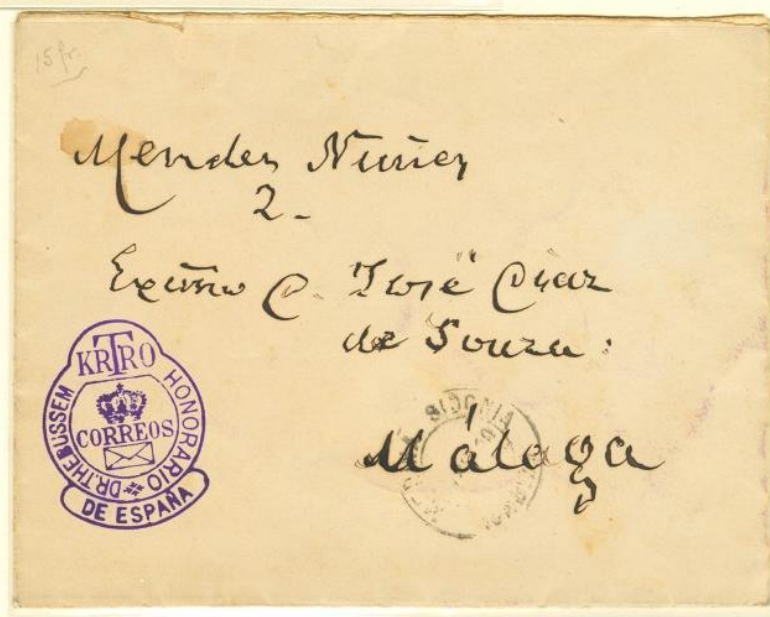 15 fr.
Mendez Nuñez
2-
Excmo D. José Diaz
de Souza:
Málaga
KRTRO
HONORARIO
DR. THEBUSSEM
CORREOS
DE ESPAÑA
SIDONIA